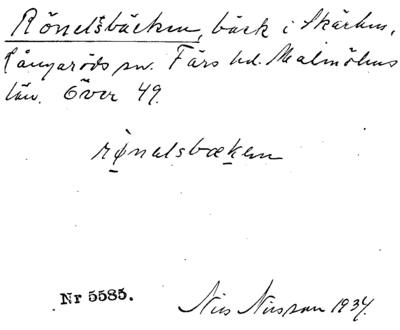 Rönelsbäcken, bäck i Skärhus,
Långaröds sn. Färs hd. Malmöhus
län. Över 49.
rønelsbækен
Nr 5585.
Nils Nilsson 1934.